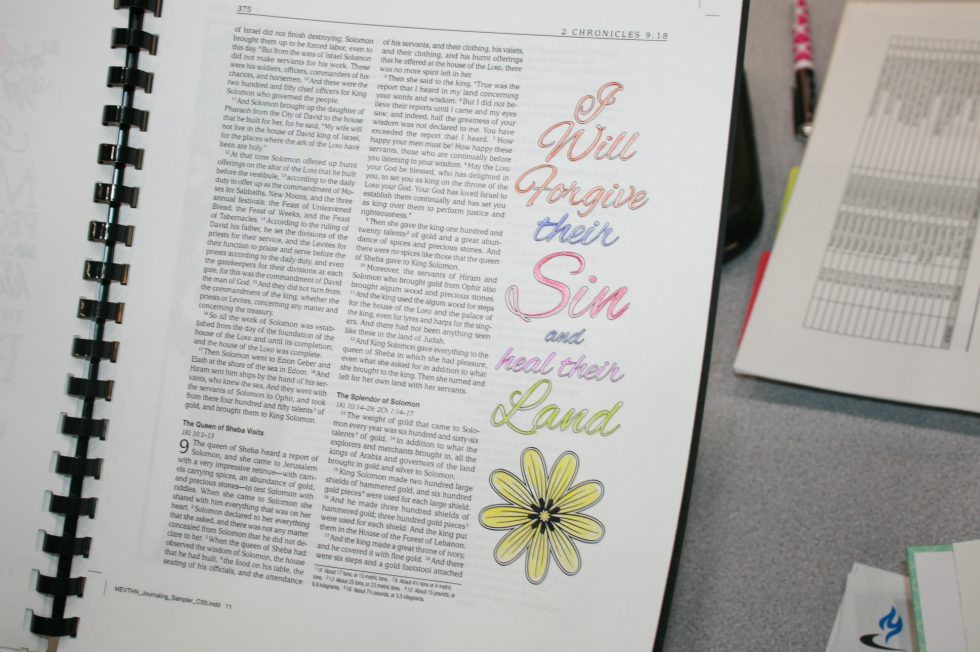 375
2 CHRONICLES 9:18
of Israel did not finish destroying, Solomon
brought them up to be forced labor, even to
this day. 9 But from the sons of Israel Solomon
did not make servants for his work. These
were his soldiers, officers, commanders of his
chariots, and horsemen. 10 And these were the
two hundred and fifty chief officers for King
Solomon who governed the people.
11 And Solomon brought up the daughter of
Pharaoh from the City of David to the house
that he built for her, for he said, "My wife will
not live in the house of David king of Israel,
for the places where the ark of the LORD have
been are holy."
12 At that time Solomon offered up burnt
offerings on the altar of the LORD that he built
before the vestibule, 13 according to the daily
duty to offer up as the commandment of Mo-
ses for Sabbaths, New Moons, and the three
annual festivals: the Feast of Unleavened
Bread, the Feast of Weeks, and the Feast
of Tabernacles. 14 According to the ruling of
David his father, he set the divisions of the
priests for their service, and the Levites for
their function to praise and serve before the
priests according to the daily duty, and even
the gatekeepers for their divisions at each
gate, for this was the commandment of David
the man of God. 15 And they did not turn from
the commandment of the king, whether the
priests or Levites, concerning any matter and
concerning the treasury.
16 So all the work of Solomon was estab-
lished from the day of the foundation of the
house of the LORD and until its completion;
and the house of the LORD was complete.
17 Then Solomon went to Ezion Geber and
Elath at the shore of the sea in Edom. 18 And
Hiram sent him ships by the hand of his ser-
vants, who knew the sea. And they went with
the servants of Solomon to Ophir, and took
from there four hundred and fifty talents 1 of
gold, and brought them to King Solomon.
The Queen of Sheba Visits
1Ki 10:1–13
9 The queen of Sheba heard a report of
Solomon, and she came to Jerusalem
with a very impressive retinue—with cam-
els carrying spices, an abundance of gold,
and precious stones—to test Solomon with
riddles. When she came to Solomon she
shared with him everything that was on her
heart. 2 Solomon declared to her everything
that she asked, and there was not any matter
concealed from Solomon that he did not de-
clare to her. 3 When the queen of Sheba had
observed the wisdom of Solomon, the house
that he had built, 4 the food on his table, the
seating of his officials, and the attendance
of his servants, and their clothing, his valets,
and their clothing, and his burnt offerings
that he offered at the house of the LORD, there
was no more spirit left in her.
5 Then she said to the king, "True was the
report that I heard in my land concerning
your words and wisdom. 6 But I did not be-
lieve their reports until I came and my eyes
saw; and indeed, half the greatness of your
wisdom was not declared to me. You have
exceeded the report that I heard. 7 How
happy your men must be! How happy these
servants, those who are continually before
you listening to your wisdom. 8 May the LORD
your God be blessed, who has delighted in
you, to set you as king on the throne of the
LORD your God. Your God has loved Israel to
establish them continually and has set you
as king over them to perform justice and
righteousness."
9 Then she gave the king one hundred and
twenty talents 2 of gold and a great abun-
dance of spices and precious stones. And
there were no spices like those that the queen
of Sheba gave to King Solomon.
10 Moreover, the servants of Hiram and
Solomon who brought gold from Ophir also
brought algum wood and precious stones.
11 And the king used the algum wood for steps
for the house of the LORD and the palace of
the king, even for lyres and harps for the sing-
ers. And there had not been anything seen
like these in the land of Judah.
12 And King Solomon gave everything to the
queen of Sheba in which she had pleasure,
even what she asked for in addition to what
she brought to the king. Then she turned and
left for her own land with her servants.
The Splendor of Solomon
1Ki 10:14–29; 2Ch 1:14–17
13 The weight of gold that came to Solo-
mon every year was six hundred and sixty-six
talents 3 of gold. 14 In addition to what the
explorers and merchants brought in, all the
kings of Arabia and governors of the land
brought in gold and silver to Solomon.
15 King Solomon made two hundred large
shields of hammered gold, and six hundred
gold pieces 4 were used for each large shield.
16 And he made three hundred shields of
hammered gold; three hundred gold pieces 5
were used for each shield. And the king put
them in the House of the Forest of Lebanon.
17 And the king made a great throne of ivory,
and he covered it with fine gold. 18 And there
were six steps and a gold footstool attached
I
Will
Forgive
their
Sin
and
heal their
Land
MEVTHN_Journaling_Sampler_CS5.indd 11